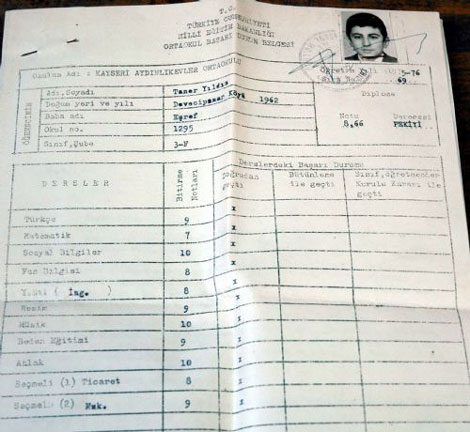 T.C.
TÜRKİYE CUMHURİYETİ
MİLLİ EĞİTİM BAKANLIĞI
ORTAOKUL BAŞARI DURUM BELGESİ
Okulun Adı : KAYSERİ AYDINLIKEVLER ORTAOKULU
Öğretim Yılı 1975-76
69
ÖĞRENCİNİN
Adı, Soyadı Taner Yıldız
Doğum yeri ve yılı Devecipınar Köyü 1962
Baba adı Eşref
Okul no. 1295
Sınıf, Şube 3-F
Diploma
Notu Derecesi
8,66 PEKİYİ
DERSLER
Bitirme Notları
Derslerdeki Başarı Durumu
Doğrudan geçti
Bütünleme ile geçti
Sınıf, öğretmenler Kurulu Kararı ile geçti
Türkçe 9 x
Matematik 7 x
Sosyal Bilgiler 10 x
Fen Bilgisi 8 x
Y.Dil ( İng. ) 8 x
Resim 9 x
Müzik 10 x
Beden Eğitimi 9 x
Ahlak 10 x
Seçmeli (1) Ticaret 8 x
Seçmeli (2) Mek. 9 x